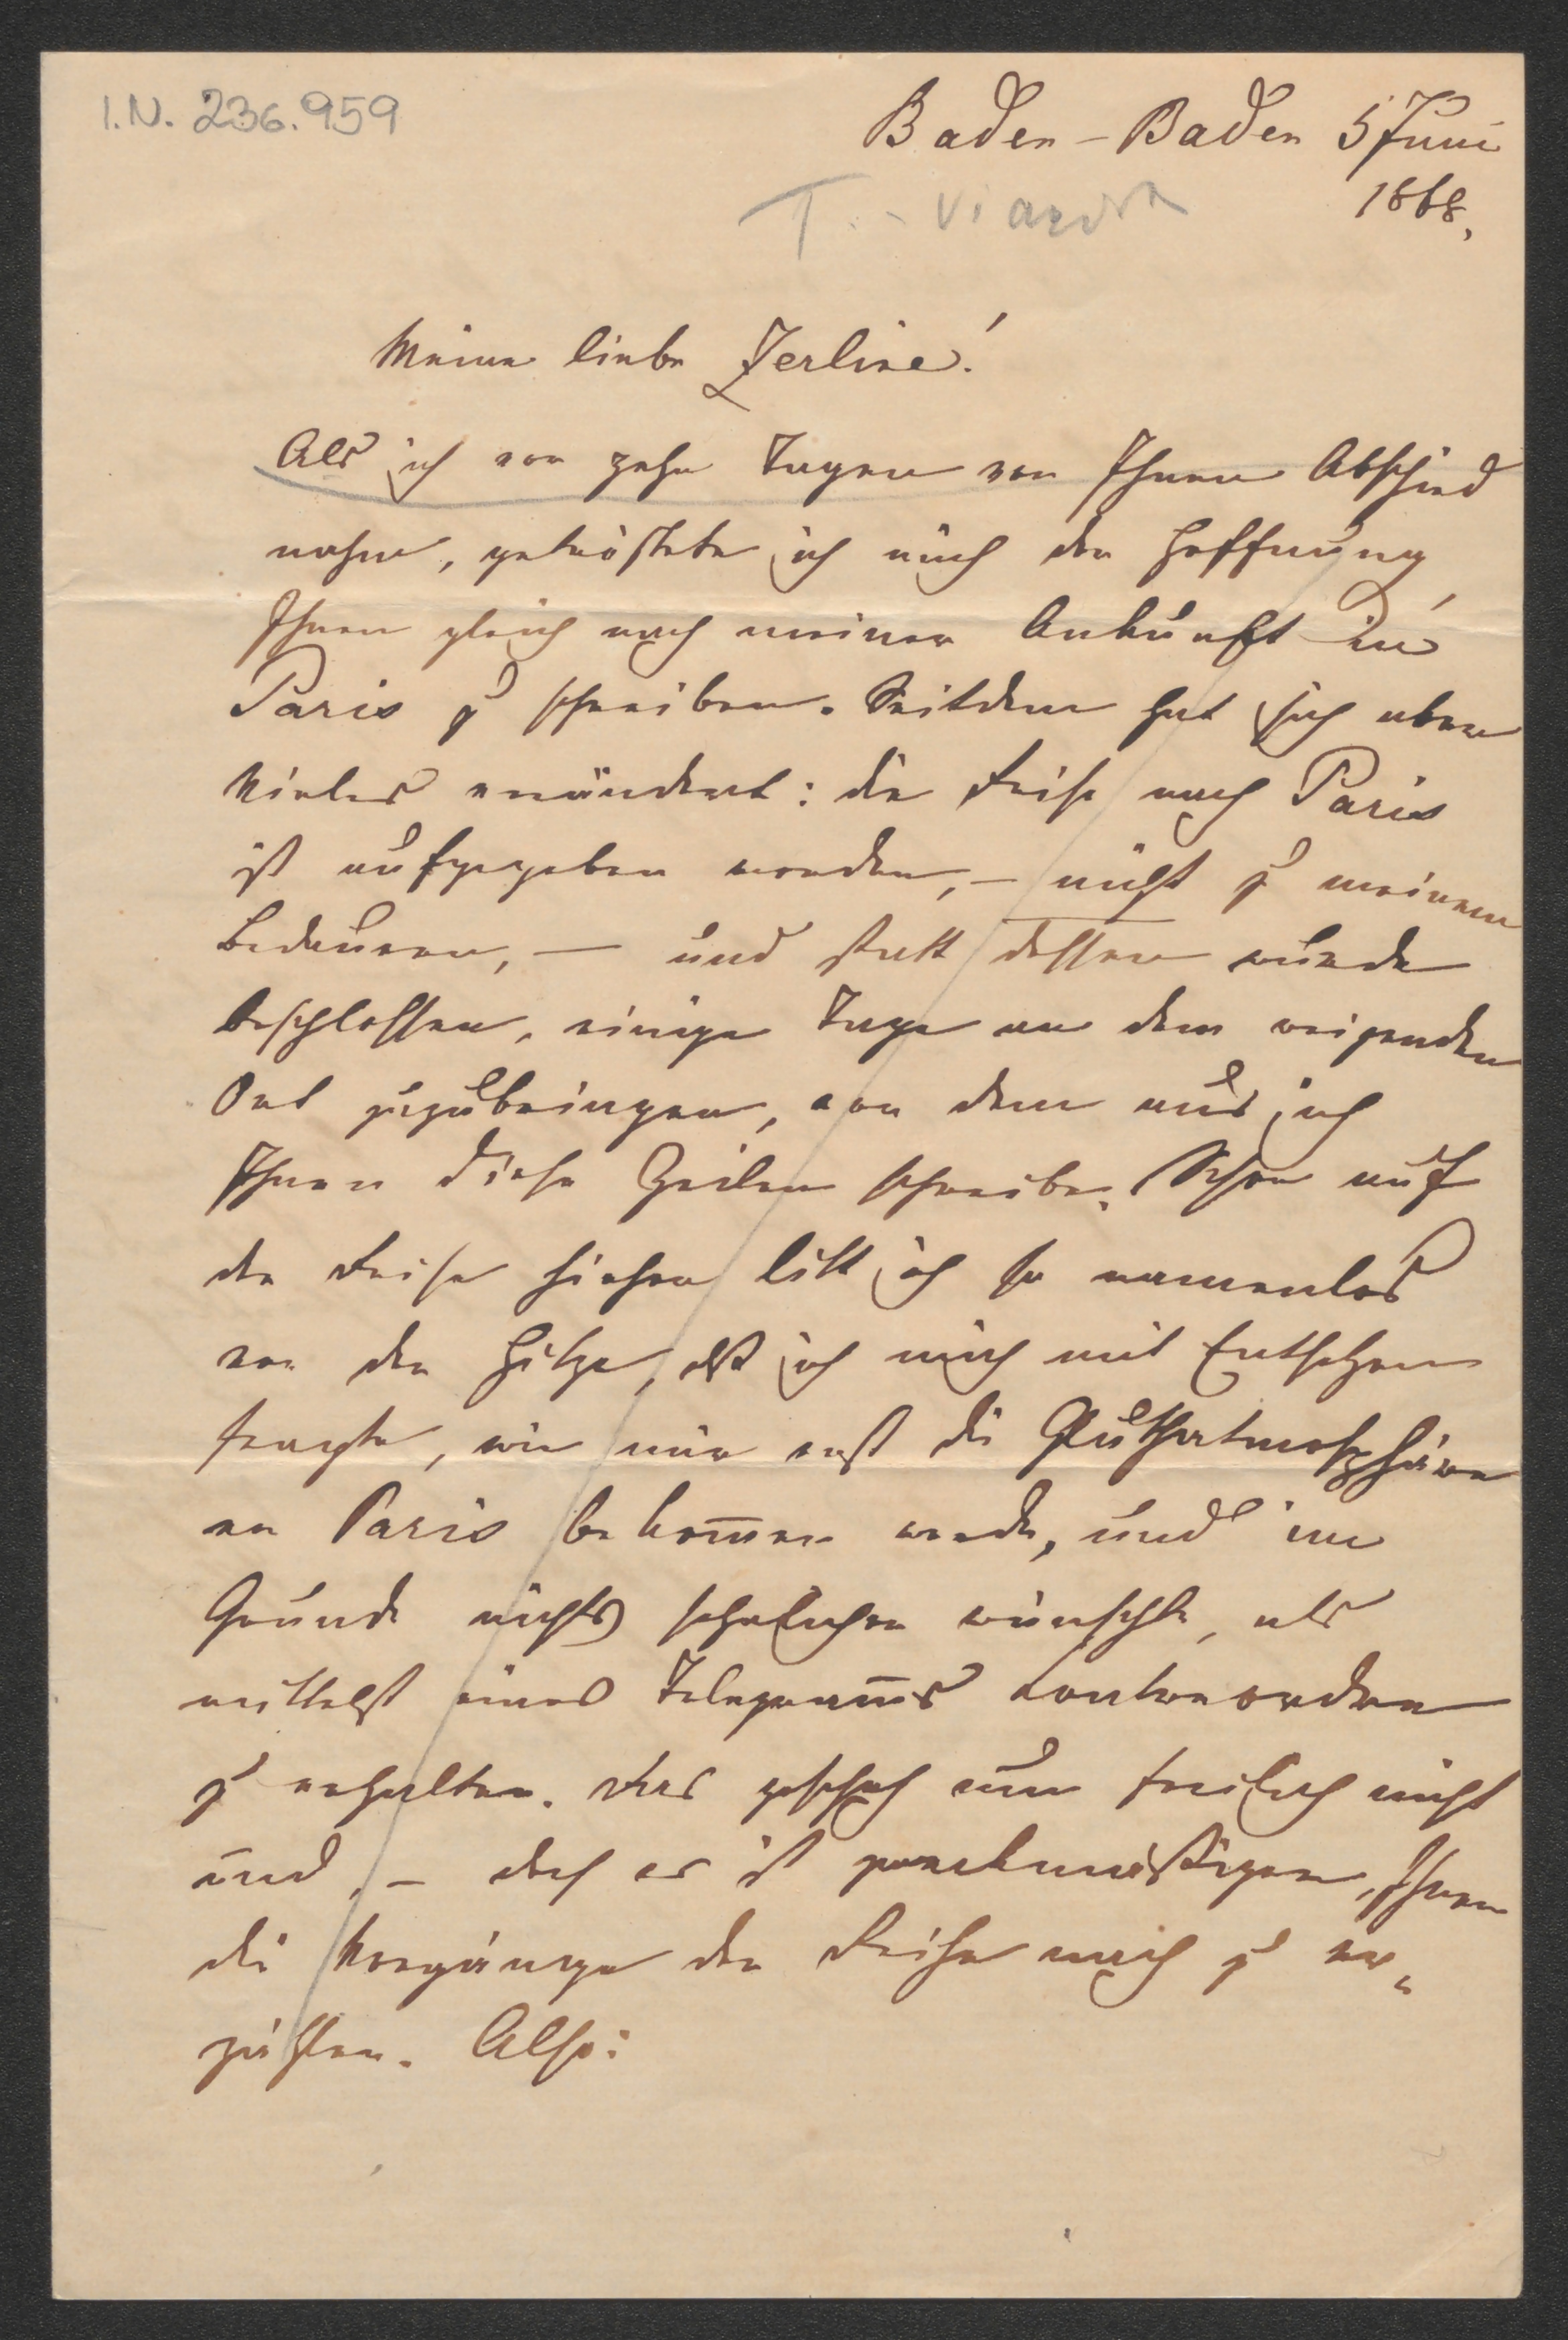 I.N. 236.959
Baden-Baden 5 Juni
1868.
T. - Viardot
Meine liebe Zerline!
Als ich vor zehn Tagen von Ihnen Abschied
nahm, getröstete ich mich der Hoffnung,
Ihnen gleich nach meiner Ankunft in
Paris zu schreiben. Seitdem hat sich aber
Vieles verändert: die Reise nach Paris
ist aufgegeben worden, – nicht zu meinem
Bedauern, – und statt dessen wurde
beschlossen, einige Tage an dem reizenden
Ort zuzubringen, von dem aus ich
Ihnen diese Zeilen schreibe. Schon auf
der Reise hieher litt ich so namenlos
von der Hitze, daß ich mich mit Entsetzen
fragte, wie mir erst die Gluthatmosphäre
in Paris bekom̅en werde, und im
Grunde nichts sehnlicher wünschte, als
mittelst eines Telegram̅s Contreordre
zu erhalten. Das geschah nun freilich nicht
und, – doch es ist zweckmäßiger, Ihnen
die Vorgänge der Reise nach zu er-
zählen. Also: